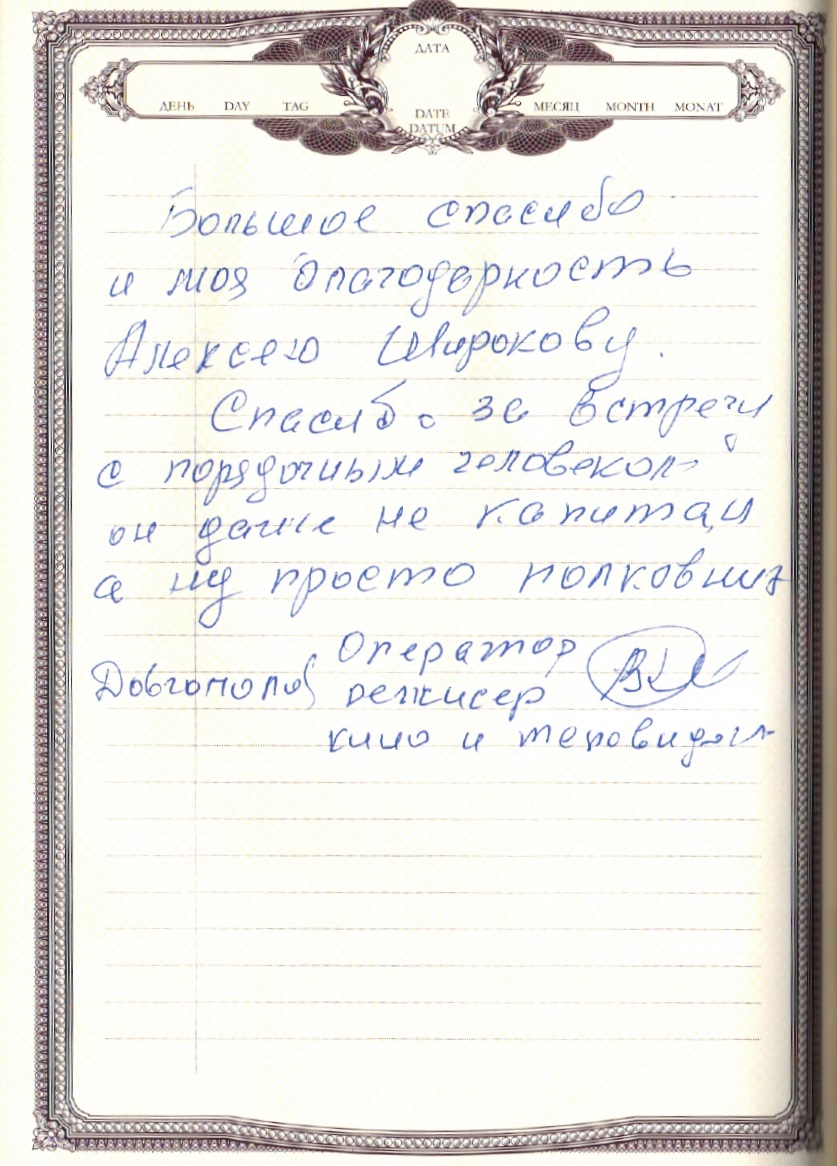 ДАТА
ДЕНЬ DAY TAG
DATE
DATUM
МЕСЯЦ MONTH MONAT
Большое спасибо
и моя благодарность
Алексею Широкову.
Спасибо за встречи
с порядочным человеком
он даже не капитан
а ну просто полковник
Оператор
Довгополов режисер
кино и телевиден